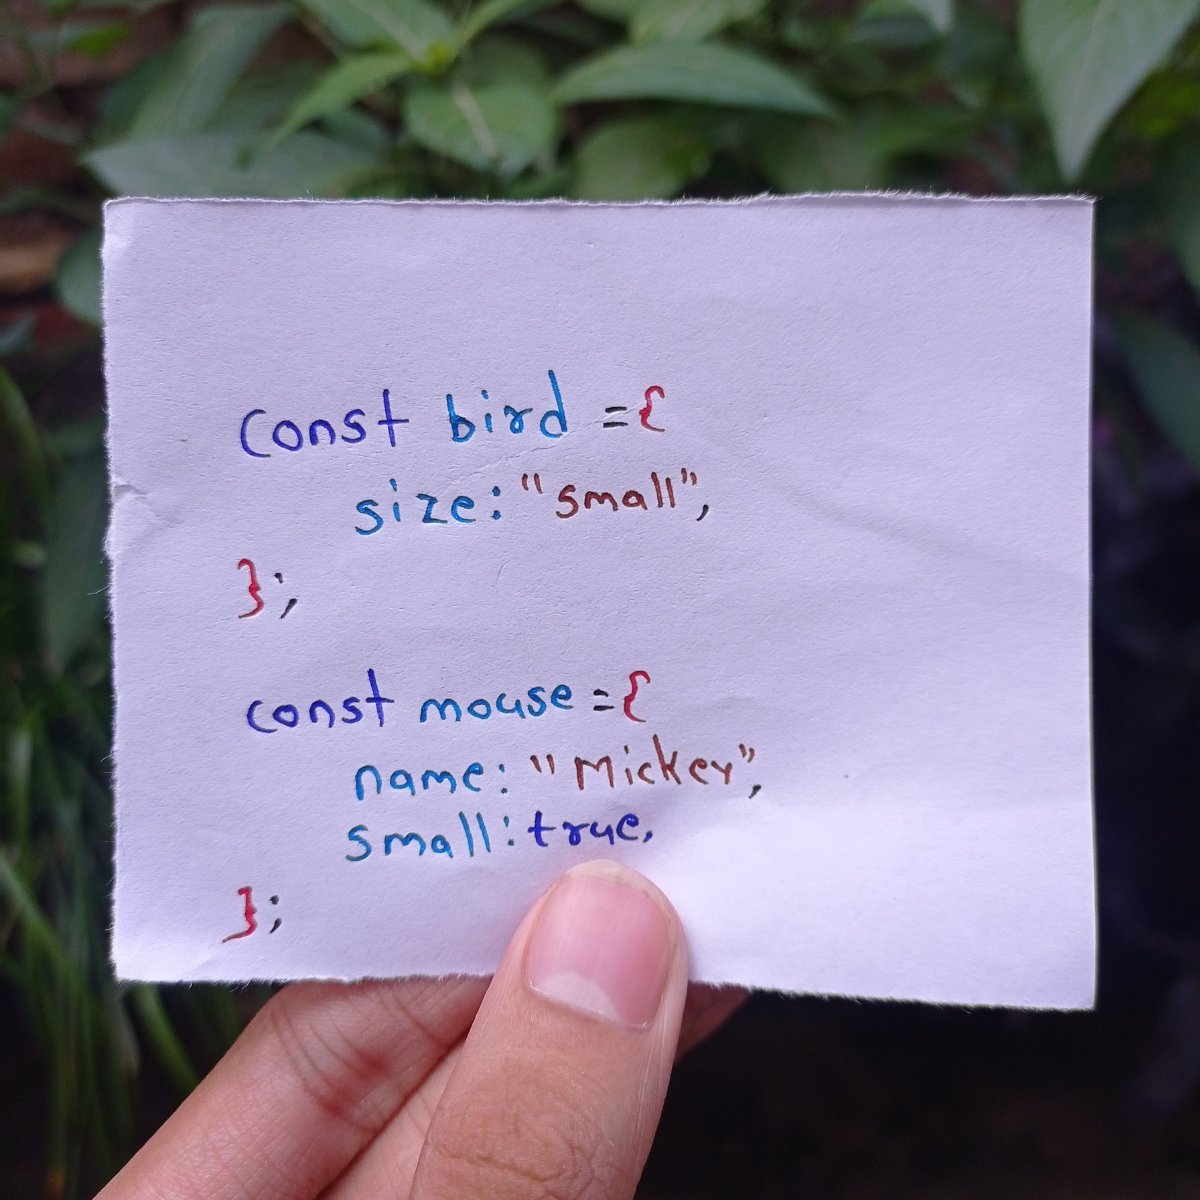 const bird = {
size: "small",
};
const mouse = {
name: "Mickey",
small: true,
};